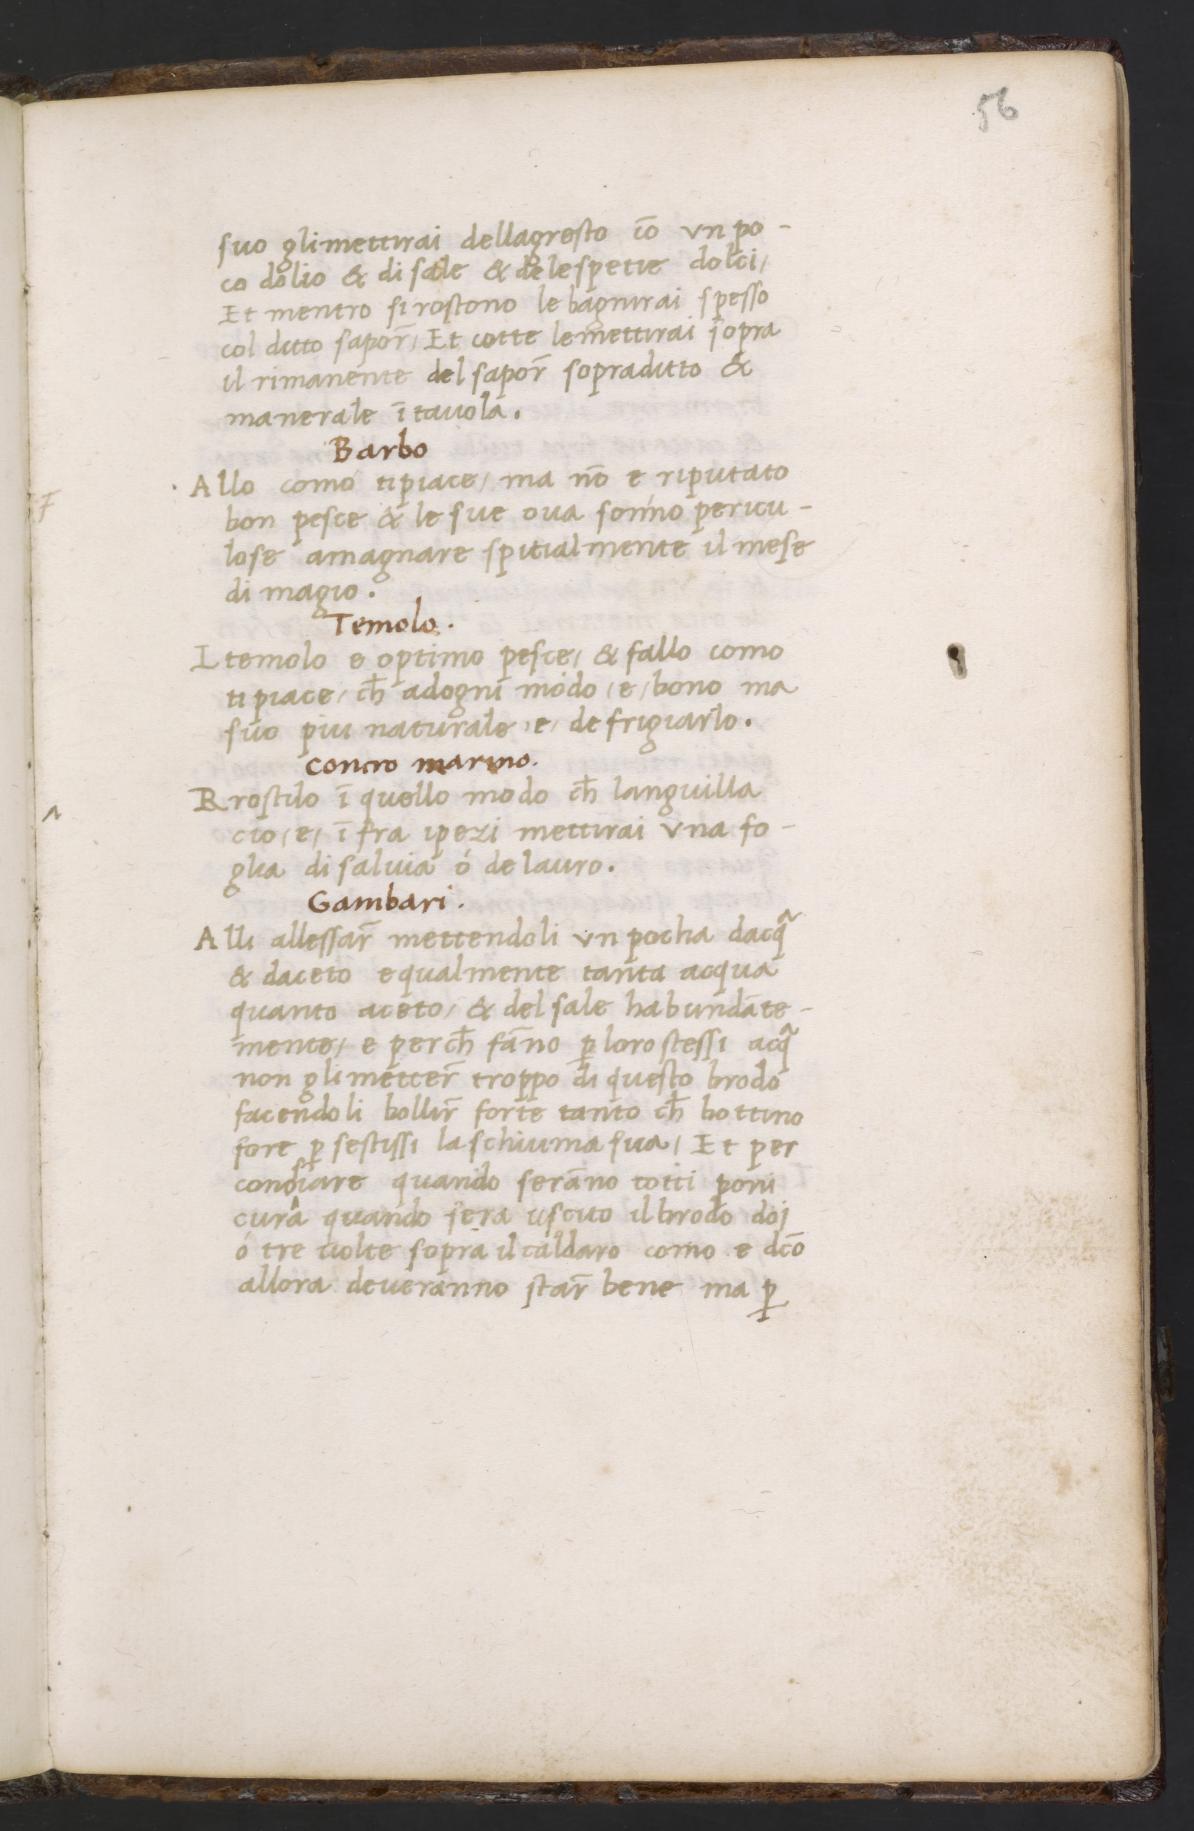 56
suo glimettirai dellagresto cō vn po-
co dolio & di sale & de le spetie dolci/
Et mentro si rostono le bagnirai spesso
col ditto sapor̄/ Et cotte lemettirai sopra
il rimanente del sapor̄ sopraditto &
manerale ī tauola.
Barbo
Allo como ti piace/ ma nō e riputato
bon pesce & le sue oua sonno pericu-
lose amagnare spitialmente il mese
di magio.
Temolo.
I temolo e optimo pesce/ & fallo como
ti piace/ ch̄ adogni modo /e/ bono ma
suo piu naturale /e/ de frigiarlo.
Concro marino.
Rrostilo ī quello modo ch̄ languilla
cio /e/ ī fra ipezi mettirai vna fo-
glia di saluia ó de lauro.
Gambari.
Alli allessar̄ mettendoli vn pocha dacq̄a
& daceto equalmente tanta acqua
quanto aceto/ & del sale habundāte-
mente/ e perch̄ fāno p̄ loro stessi acq̄a
non gli metter̄ troppo di questo brodo
facendoli bollir̄ forte tanto ch̄ bottino
fore p̄ sestissi la schiuma sua/ Et per
consiare quando serāno cotti poni
cura quando sera uscito il brodo doi
ó tre uolte sopra il caldaro como e dcō
allora deueranno star̄ bene ma p̄